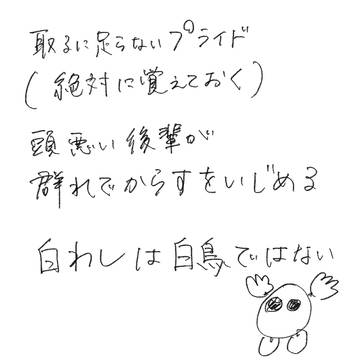 取るに足らないプライド
(絶対に覚えておく)
頭悪い後輩が
群れでからすをいじめる
白わしは白鳥ではない